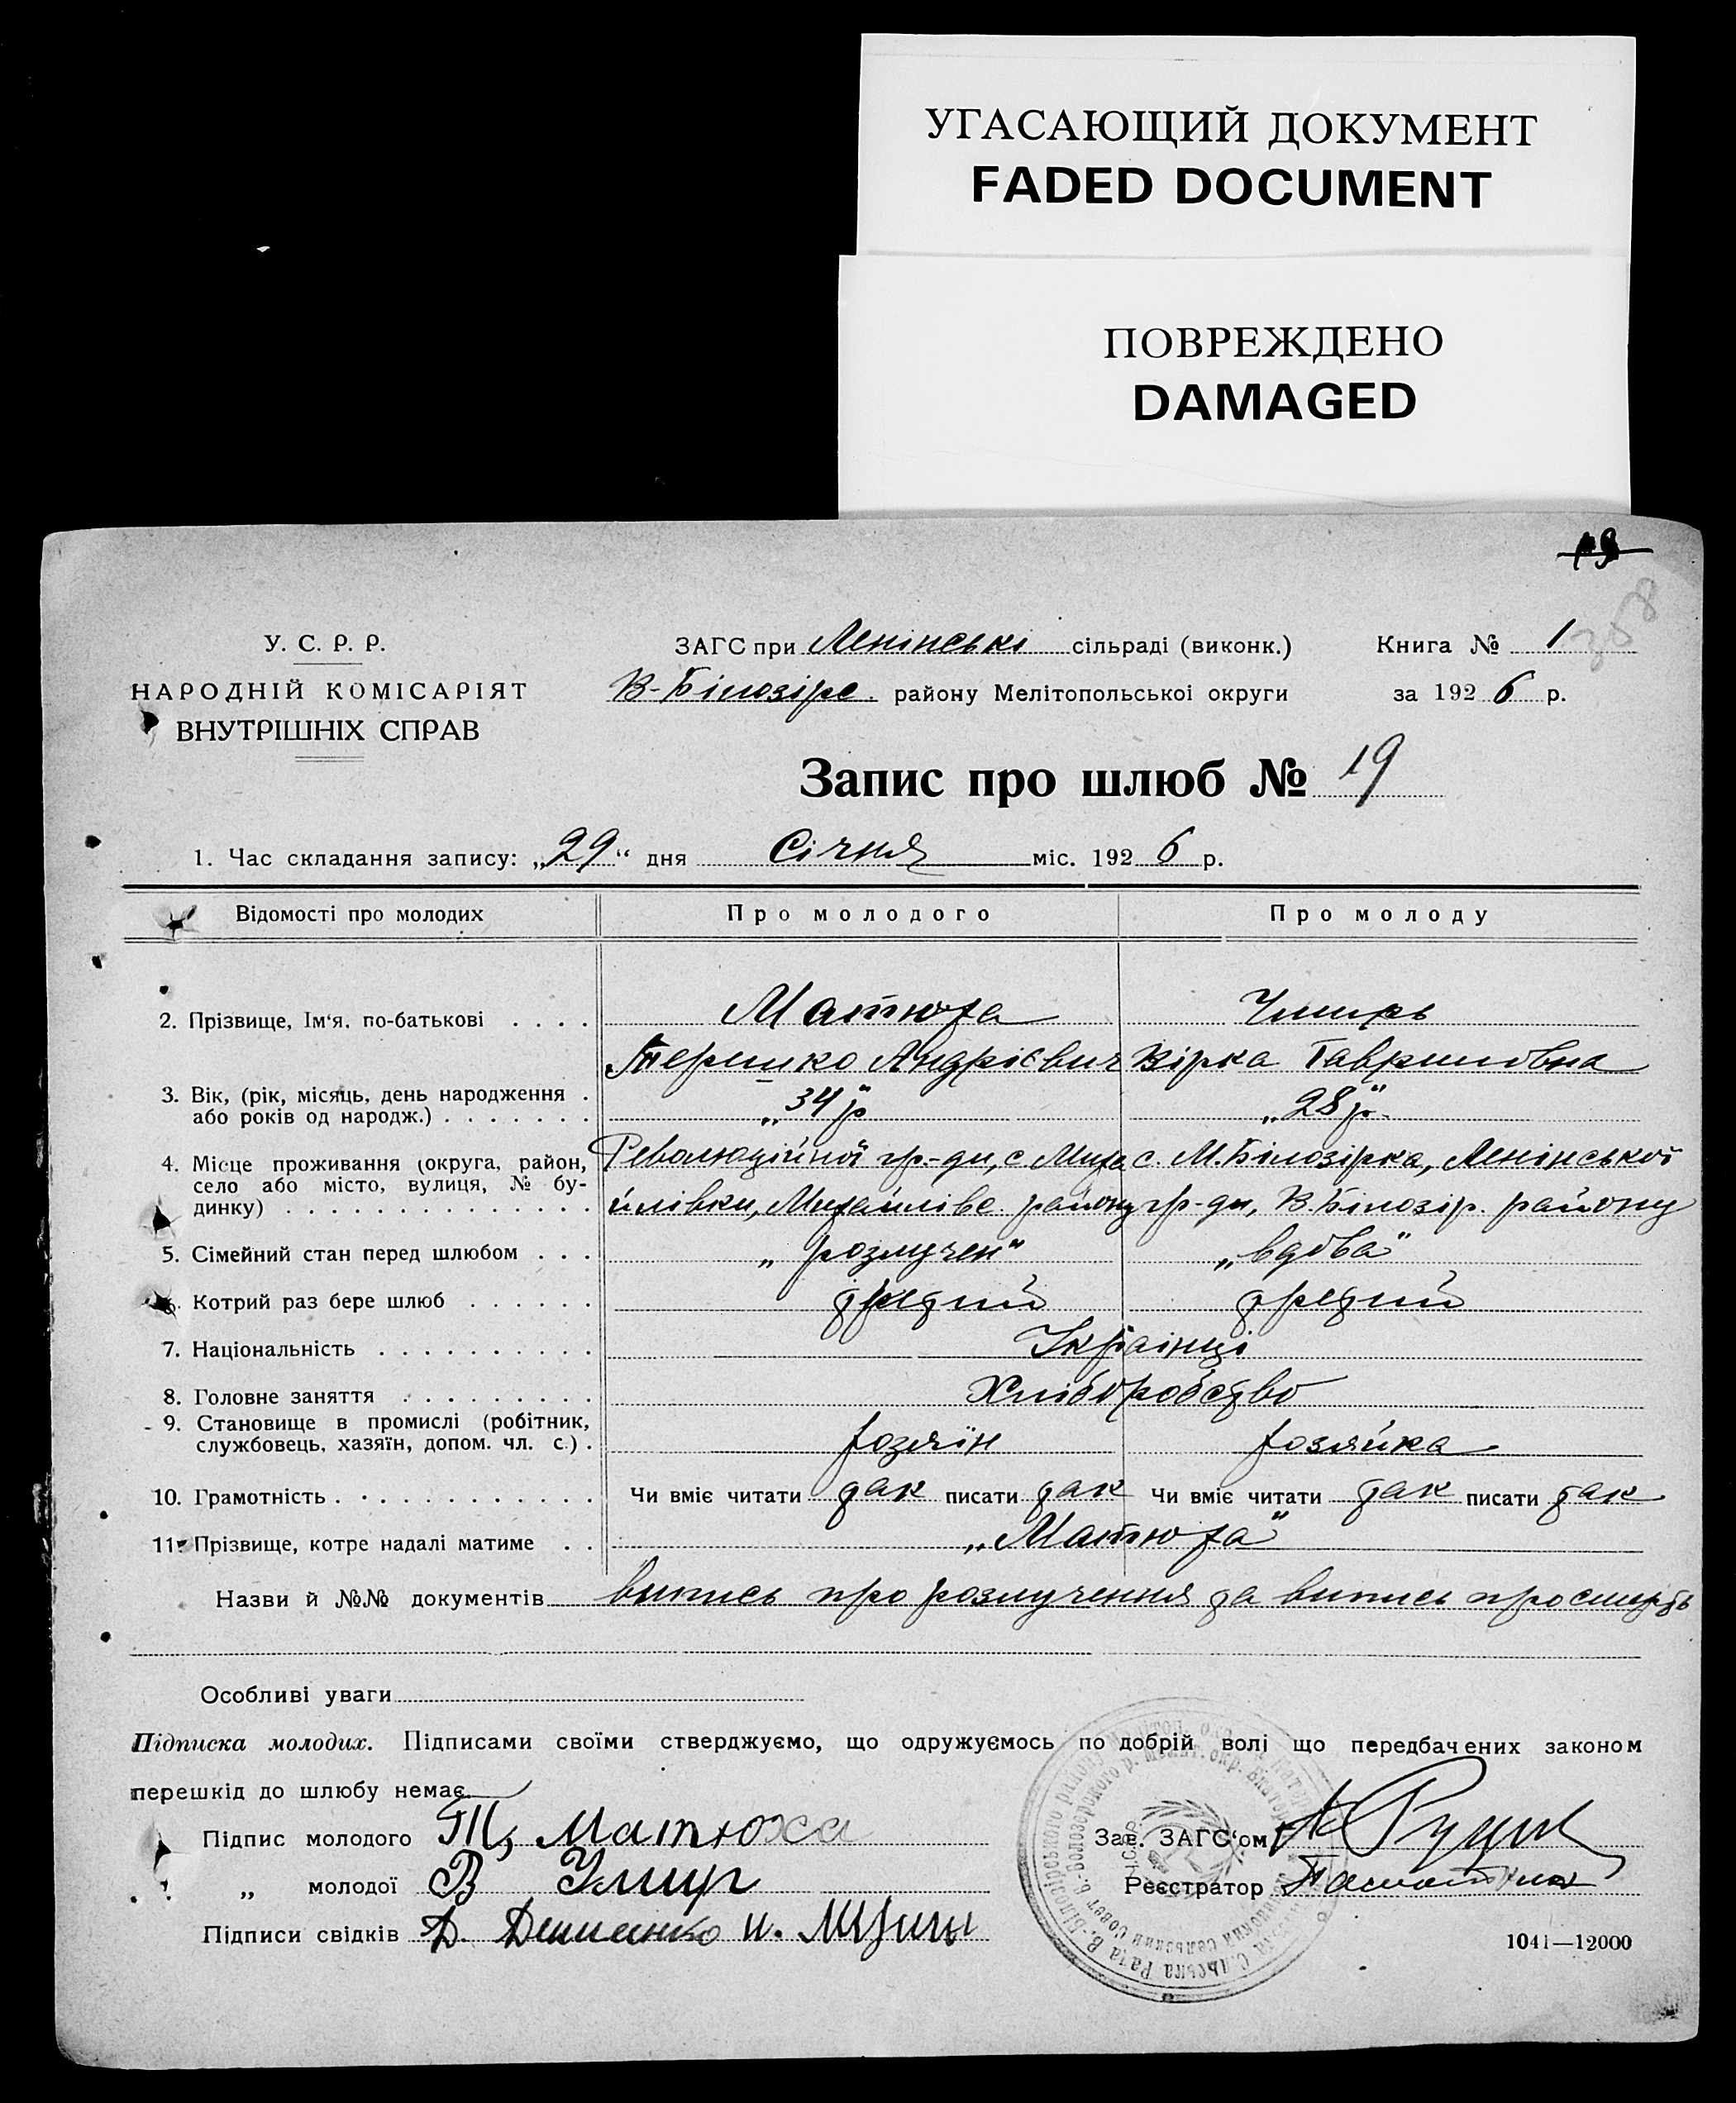 УГАСАЮЩИЙ ДОКУМЕНТ
FADED DOCUMENT
ПОВРЕЖДЕНО
DAMAGED
19
358
У. С. Р. Р.
НАРОДНІЙ КОМІСАРІЯТ
ВНУТРІШНІХ СПРАВ
ЗАГС при Ленінські сільраді (виконк.)
В-Білозірс. району Мелітопольської округи
Книга № 1
за 1926 р.
Запис про шлюб № 19
1. Час складання запису: „29“ дня Січня міс. 1926 р.
Відомості про молодих Про молодого Про молоду
2. Прізвище, Ім‘я, по-батькові . . . . Матюха Чмирь
Терешко Андрієвич Вірка Гавриловна
3. Вік, (рік, місяць, день народження .
або років од народж.) . . . . . . . „34 р“ „28 р“
4. Місце проживання (округа, район, Революційної гр-ди, с. Миха с. М. Білозірка, Ленінської
село або місто, вулиця, № бу- йлівки, Михайлівс. району гр-ди, В. Білозір. району
динку) . . . . . . . . . . . . . .
5. Сімейний стан перед шлюбом . . . „розлучен“ „вдова“
6. Котрий раз бере шлюб . . . . . . третий третий
7. Національність . . . . . . . . . . Українці
8. Головне заняття . . . . . . . . . Хлібробство
9. Становище в промислі (робітник,
службовець, хазяїн, допом. чл. с.) . хозяїн хозяйка
10. Грамотність . . . . . . . . . . . . Чи вміє читати так писати так Чи вміє читати так писати так
11. Прізвище, котре надалі матиме . . „Матюха“
Назви й №№ документів випись про розлучення та випись про смерть
Особливі уваги
Підписка молодих. Підписами своїми стверджуємо, що одружуємось по добрій волі що передбачених законом
перешкід до шлюбу немає.
Підпис молодого Т, Матюха
„ молодої В Чмир
Підписи свідків Д. Демченко и.
Зав. ЗАГС‘ом
Реєстратор
1041—12000